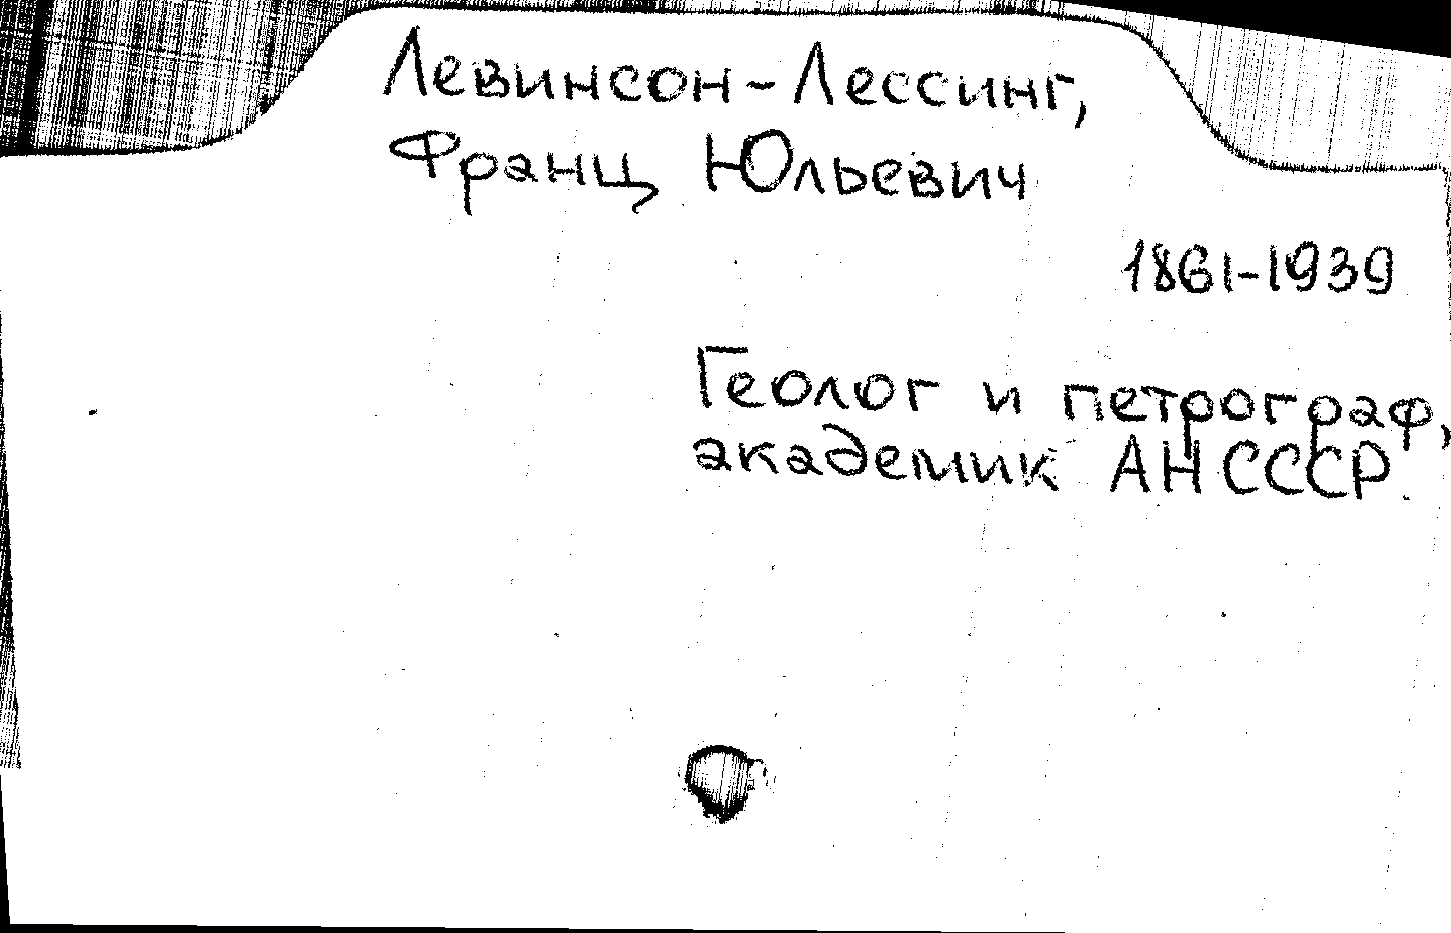 Левинсон-Лессинг,
Франц Юльевич
1861-1939
Геолог и петрограф,
академик АН СССР